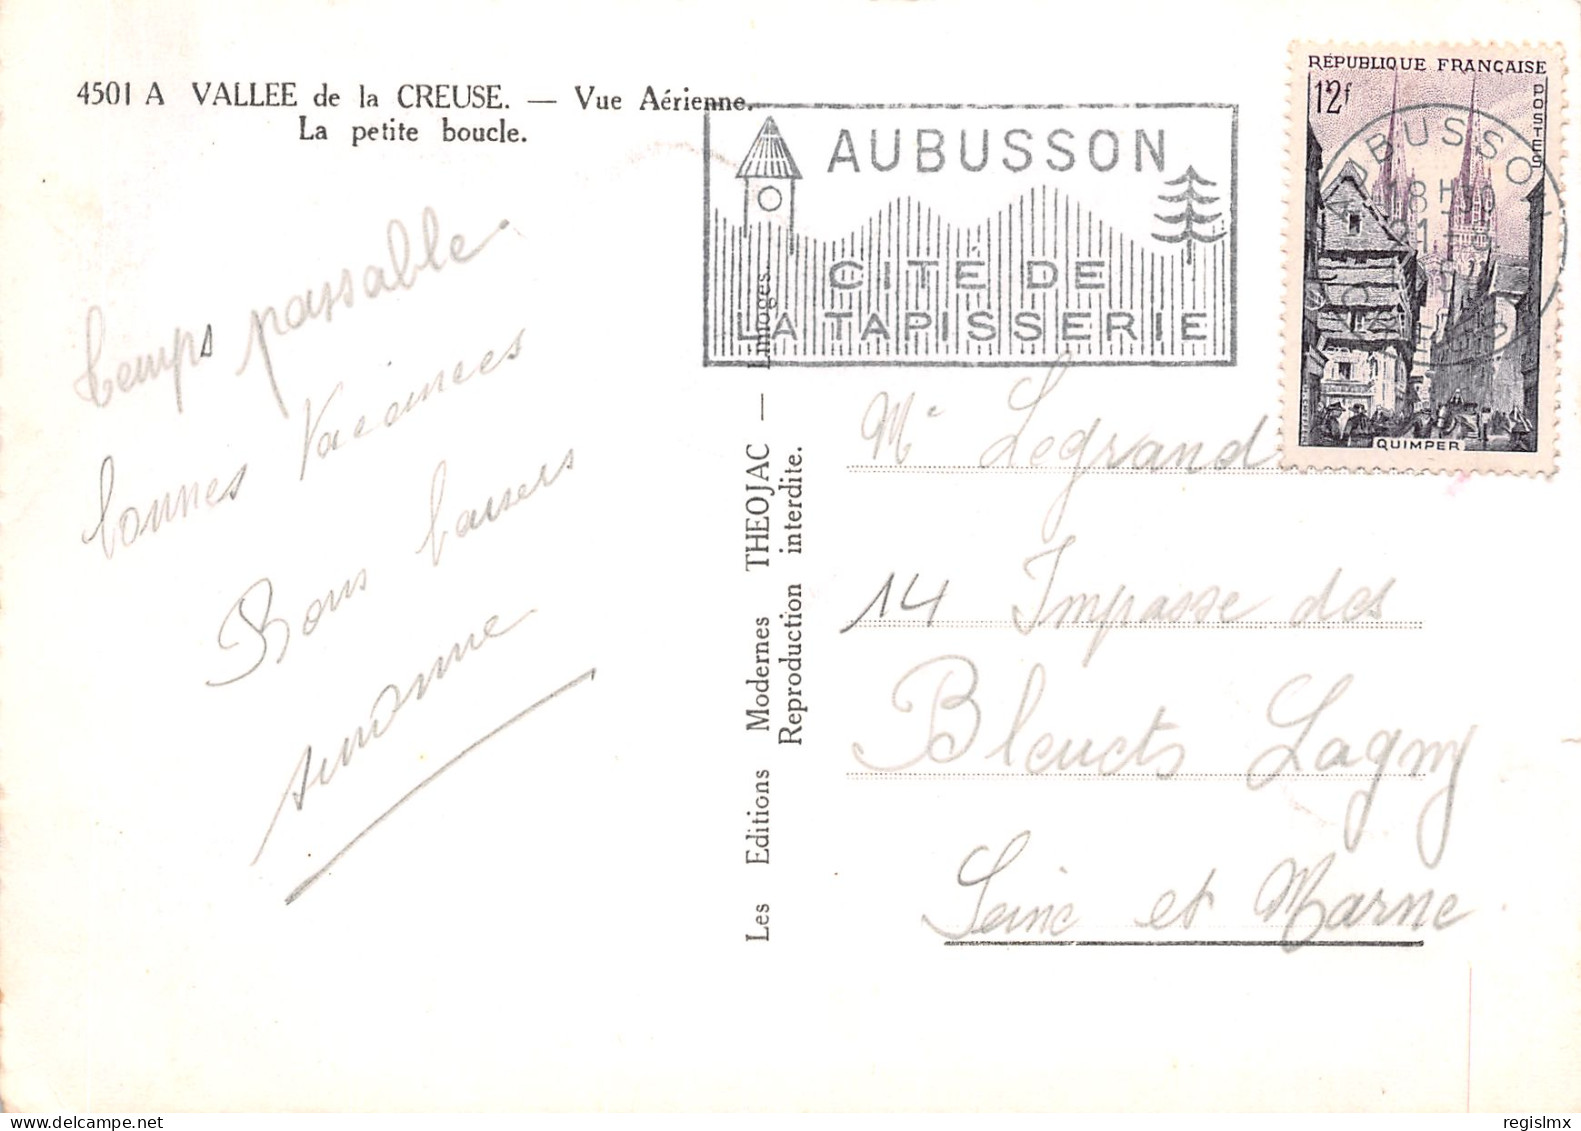 4501 A VALLEE de la CREUSE. — Vue Aérienne.
La petite boucle.
temps passable
bonnes Vacances
Bons baisers
AUBUSSON
CITÉ DE
LA TAPISSERIE
RÉPUBLIQUE FRANÇAISE
12f
POSTES
QUIMPER
AUBUSSON
18 H30
Les Editions Modernes THEOJAC — Limoges.
Reproduction interdite.
Mr Legrand
14 Impasse des
Bleuets Lagny
Seine et Marne
regislmx